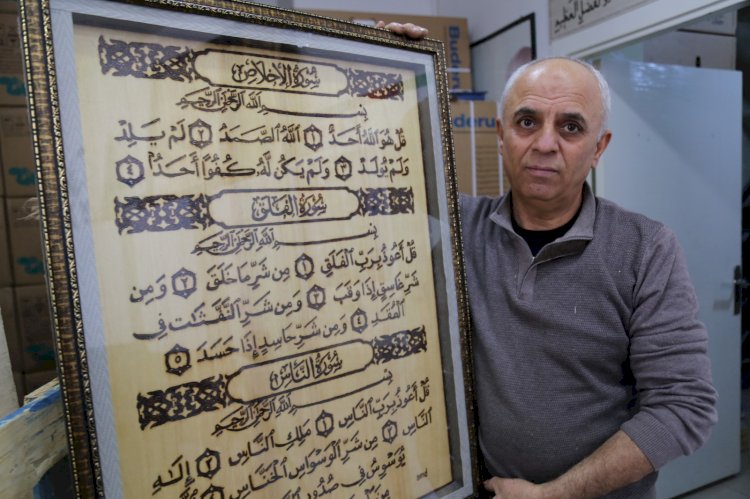 سُورَةُ الإِخْلَاصِ
بِسْمِ اللَّهِ الرَّحْمَنِ الرَّحِيمِ
قُلْ هُوَ ٱللَّهُ أَحَدٌ ١ ٱللَّهُ ٱلصَّمَدُ ٢ لَمْ يَلِدْ
وَلَمْ يُولَدْ ٣ وَلَمْ يَكُن لَّهُۥ كُفُوًا أَحَدٌۢ ٤
سُورَةُ الفَلَقِ
بِسْمِ اللَّهِ الرَّحْمَنِ الرَّحِيمِ
قُلْ أَعُوذُ بِرَبِّ ٱلْفَلَقِ ١ مِن شَرِّ مَا خَلَقَ ٢ وَمِن
شَرِّ غَاسِقٍ إِذَا وَقَبَ ٣ وَمِن شَرِّ ٱلنَّفَّٰثَٰتِ فِي
ٱلْعُقَدِ ٤ وَمِن شَرِّ حَاسِدٍ إِذَا حَسَدَ ٥
سُورَةُ النَّاسِ
بِسْمِ اللَّهِ الرَّحْمَنِ الرَّحِيمِ
قُلْ أَعُوذُ بِرَبِّ ٱلنَّاسِ ١ مَلِكِ ٱلنَّاسِ ٢ إِلَٰهِ
ٱلنَّاسِ ٣ مِن شَرِّ ٱلْوَسْوَاسِ ٱلْخَنَّاسِ
يُوَسْوِسُ فِي صُدُورِ
Bud
derus